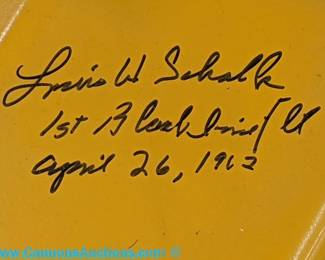 Louis W Schalk
1st Blackbird flt
April 26, 1962
www.CannonsAuctions.com ©